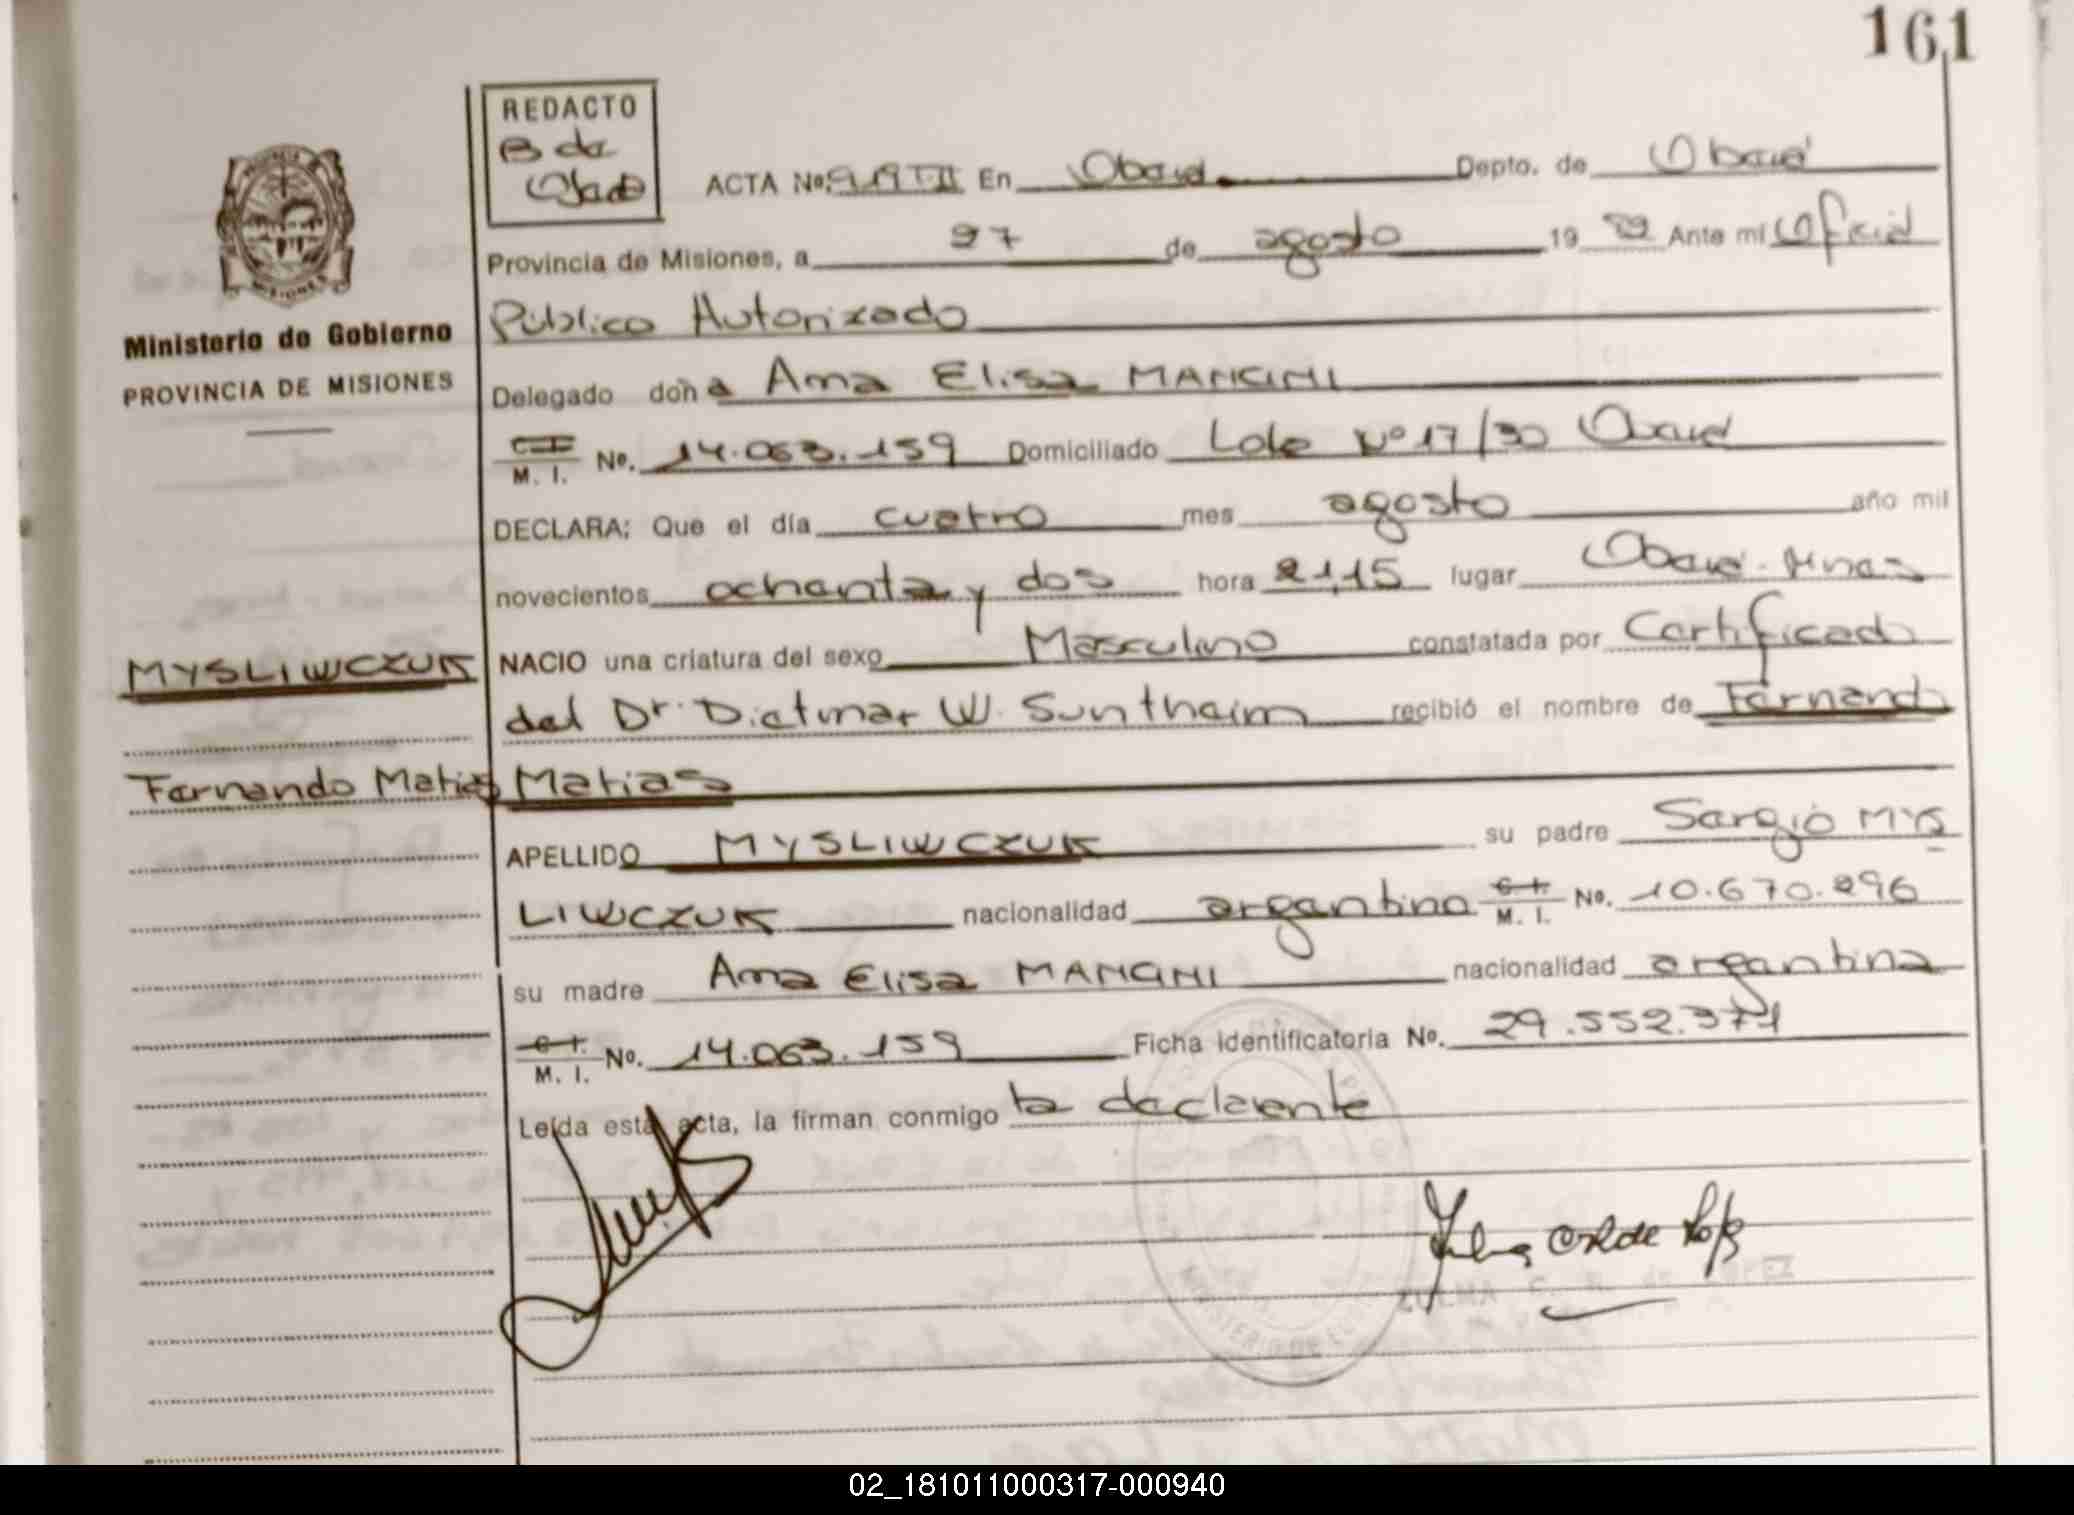 161
REDACTO
B de
ACTA No. En Oberá Depto. de Oberá
Provincia de Misiones, a 27 de agosto 19 82 Ante mí Oficial
Público Autorizado
Ministerio de Gobierno
PROVINCIA DE MISIONES
Delegado doña Ana Elisa MANCINI
C. I.
M. I. No. 14.063.159 Domiciliado Lote Nº 17/30 Oberá
DECLARA: Que el día cuatro mes agosto año mil
novecientos ochenta y dos hora 21,15 lugar Oberá. Mnes
MYSLIWCZUK
NACIO una criatura del sexo Masculino constatada por Certificado
del Dr. Dietmar W. Sunthaim recibió el nombre de Fernando
Fernando Matias
Matias
APELLIDO MYSLIWCZUK su padre Sergio MYS
LIWCZUK nacionalidad argentino C. I.
M. I. No. 10.670.296
su madre Ana Elisa MANCINI nacionalidad argentina
C. I.
M. I. No. 14.063.159 Ficha identificatoria No. 29.552.371
Leída esta acta, la firman conmigo la declarente
ZULMA C. R. de LOPEZ
02_181011000317-000940